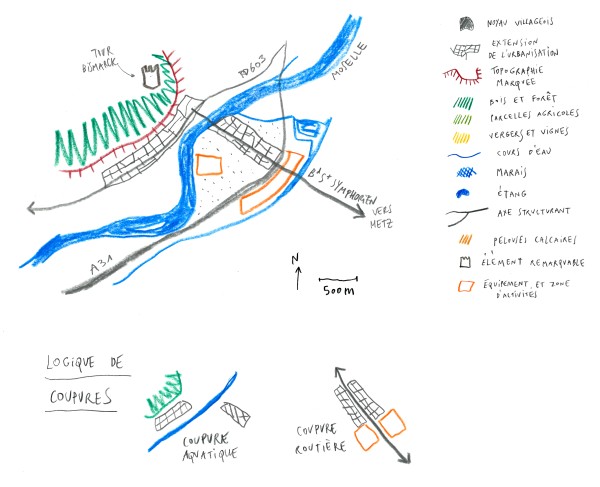 TOUR
BISMARCK
RD603
MOSELLE
Bd St SYMPHORIEN
VERS
METZ
A31
N
500m
NOYAU VILLAGEOIS
EXTENSION
DE L'URBANISATION
TOPOGRAPHIE
MARQUÉE
BOIS ET FORÊT
PARCELLES AGRICOLES
VERGERS ET VIGNES
COURS D'EAU
MARAIS
ÉTANG
AXE STRUCTURANT
PELOUSES CALCAIRES
ÉLÉMENT REMARQUABLE
ÉQUIPEMENT ET ZONE
D'ACTIVITÉS
LOGIQUE DE
COUPURES
COUPURE
AQUATIQUE
COUPURE
ROUTIÈRE